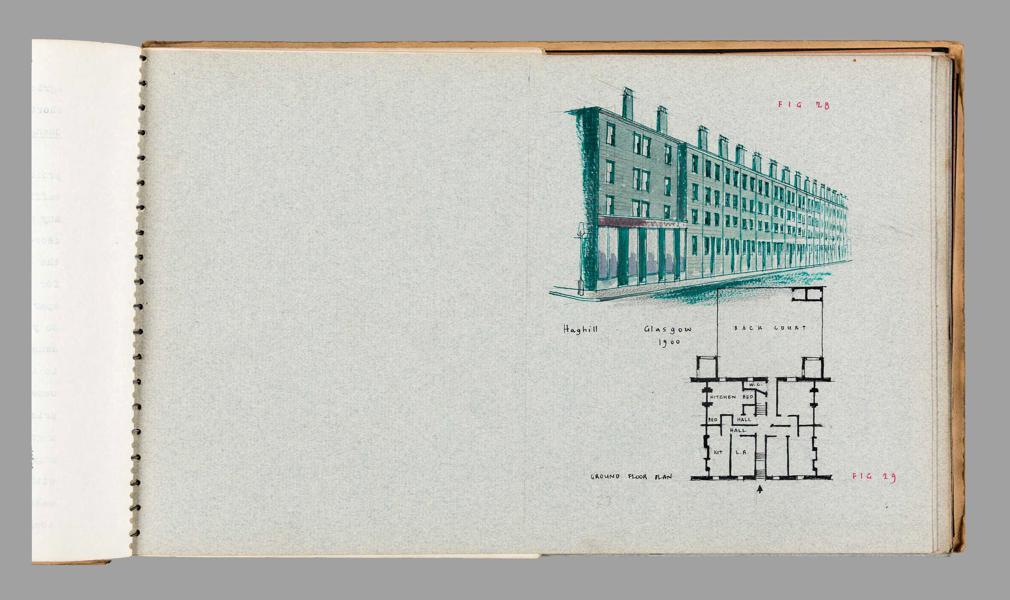 FIG 28
Haghill Glasgow
1900
BACK COURT
W.C.
KITCHEN BED
BED HALL
HALL
KIT L.R
GROUND FLOOR PLAN
FIG 29